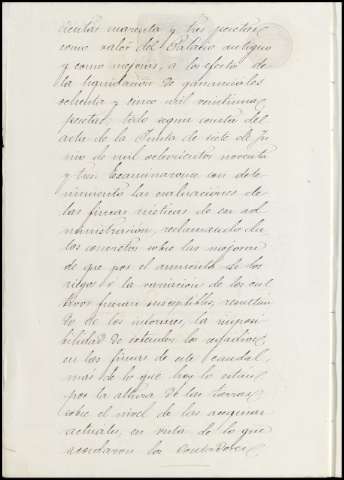 cientas cuarenta y tres pesetas
como valor del Palacio antiguo
y como mejoras, a los efectos de
la liquidación de gananciales
ochenta y cinco mil veintiuna
pesetas, todo segun consta del
acta de la Junta de siete de Ju
nio de mil ochocientos noventa
y tres. Examinaronse con dete
nimiento las evaluaciones de
las fincas rústicas de su ad
ministración, reclamando da
tos concretos sobre las mejoras
de que por el aumento de los
riegos o la variación de los cul
tivos fueran susceptibles, resultan
do de los informes, la imposi
bilidad de
en las fincas de este caudal,
mas de lo que hoy lo estan
por la altura de las tierras
sobre el nivel de las acequias
actuales, en vista de lo que
acordaron los Contadores,